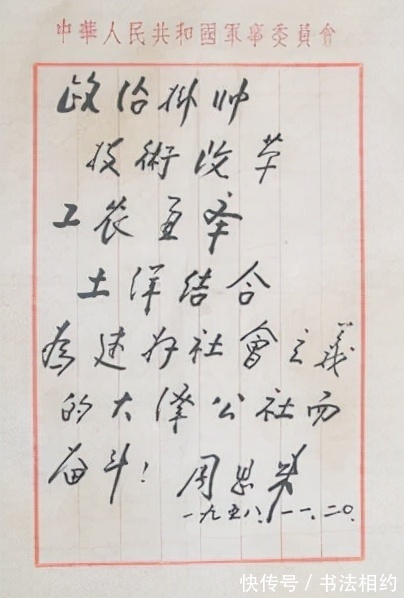 中華人民共和國軍事委員會
政治掛帅
技術改革
工农並举
土洋结合
为建好社會主義
的大澤公社而
奋斗！ 周恩来
一九五八.一一.二〇.
快传号/书法相约